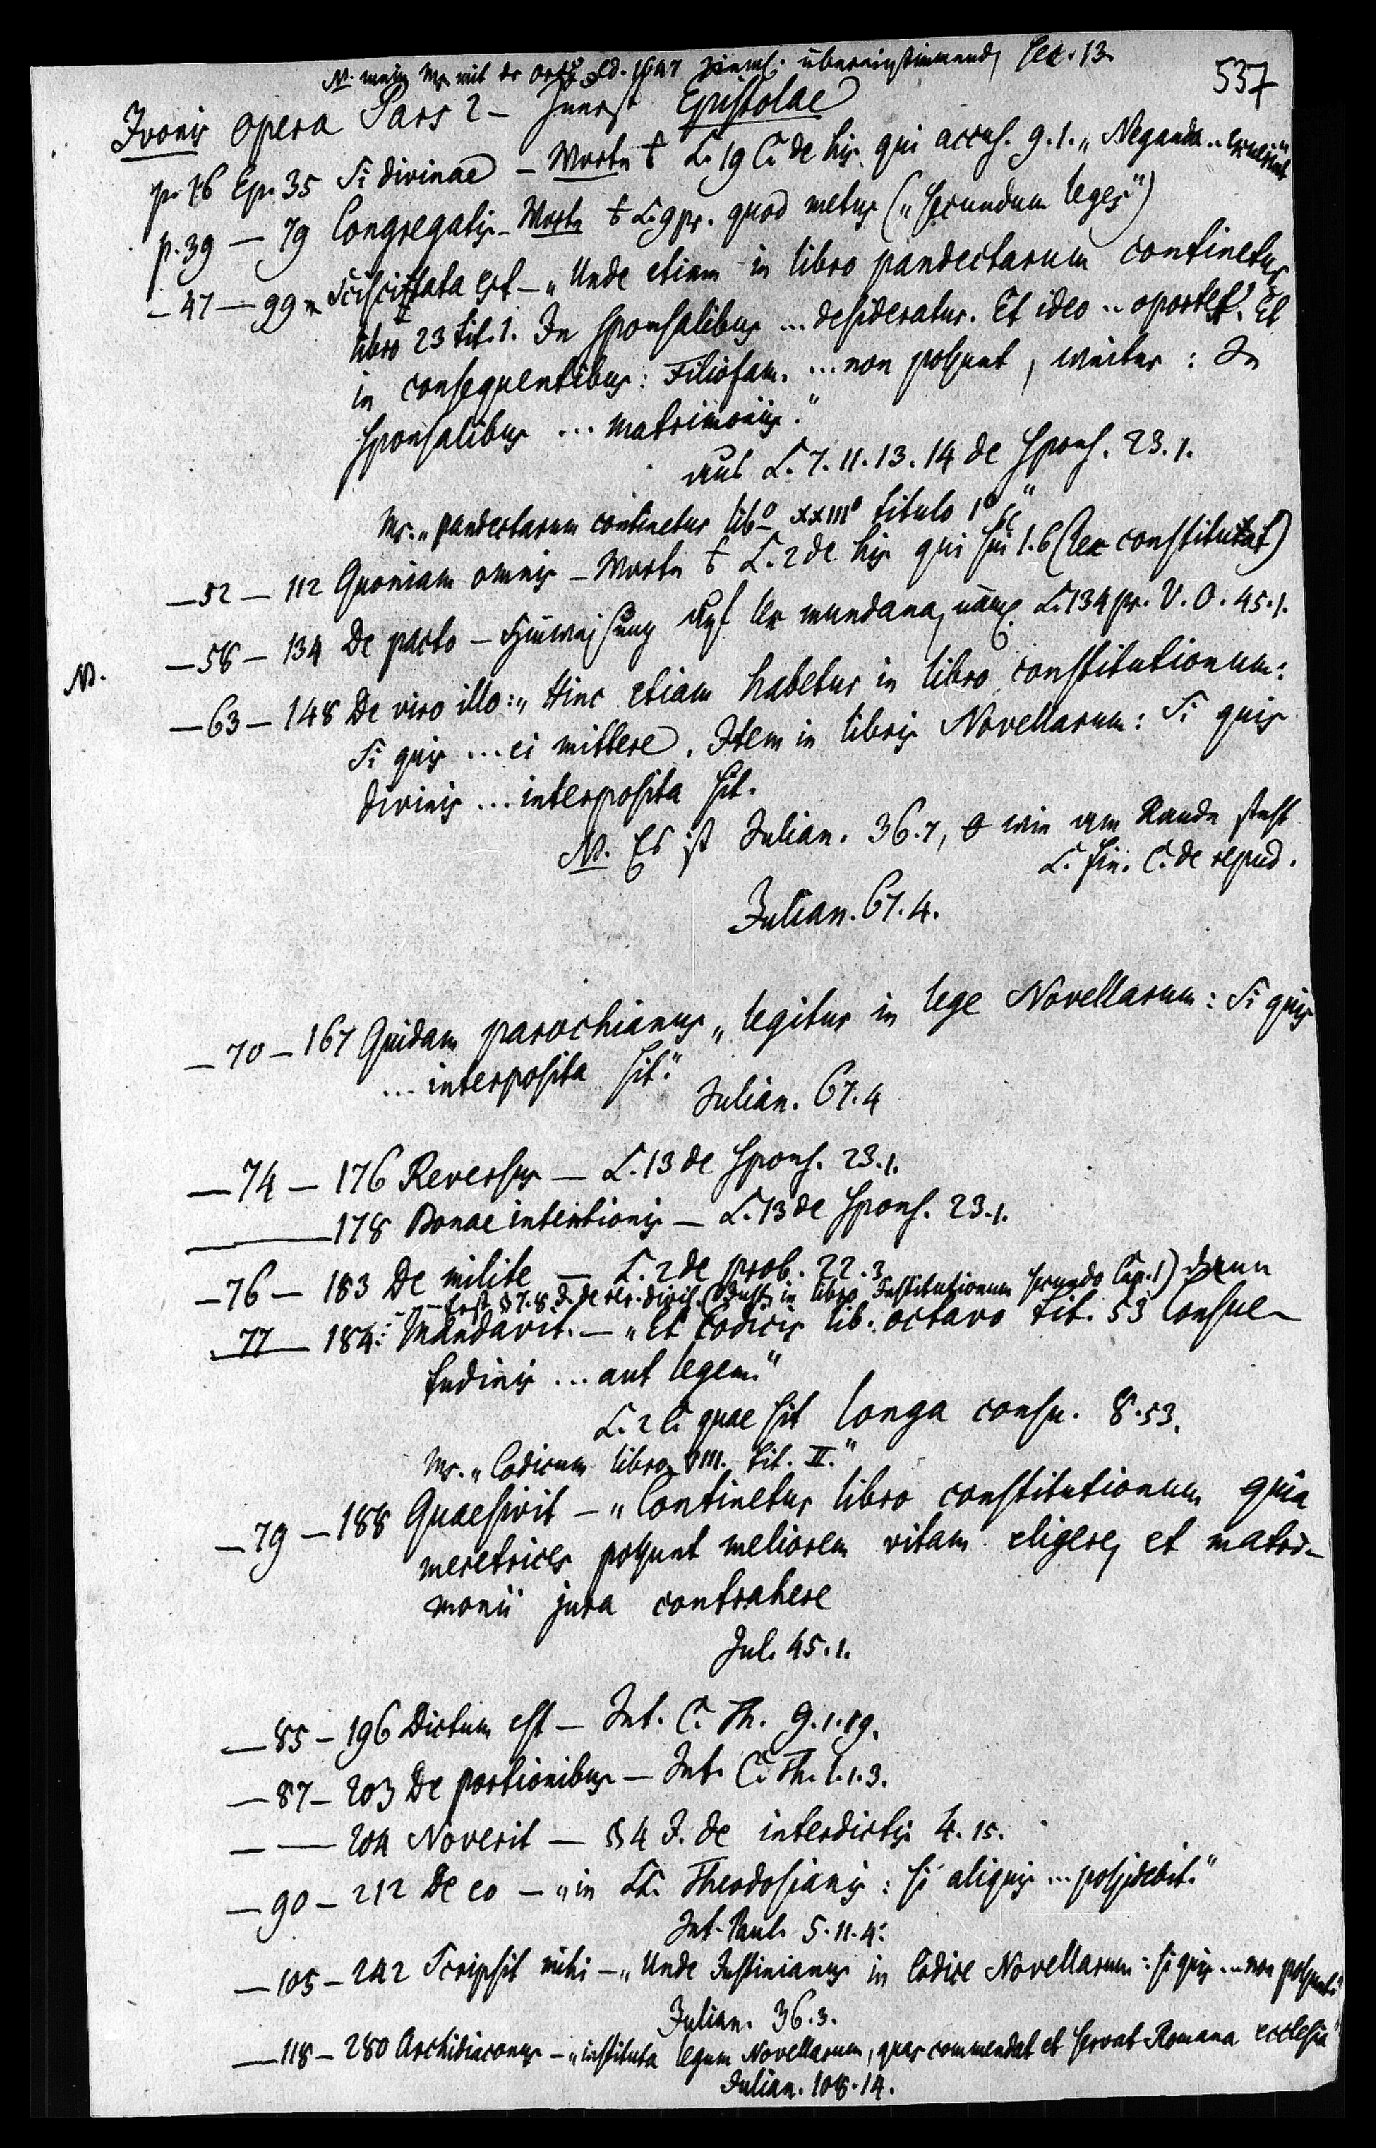 NB. mein Ms mit der ed. 1647 ziemlich übereinstimmend,
537
Ivonis opera Pars 2 – Zuerst Epistolae
p. 16 Ep. 35 Si divinae – Worte L. 19 C. de his qui accus. 9.1. „Neganda ..
p. 39 – 79 Congregatis – Worte L. 9 pr. quod metus („secundum leges")
– 47 – 99 Sciscitata est – „Unde etiam in libro pandectarum continetur
libro 23 tit. 1. In sponsalibus ... desideratur. Et ideo .. oportet. Et
in consequentibus: Filiofam. ... non possunt, weiter: In
sponsalibus ... matrimoniis."
aus L. 7. 11. 13. 14 de spons. 23.1.
Ms. „pandectarum continetur libº xxIIIº titulo 1º &c"
– 52 – 112 Quoniam omnis – Worte L. 2 de his qui sui 1.6 (lex constitutat)
– 58 – 134 De pacto – Hinweisung auf lex mundana, nämlich L. 134 pr. V. O. 45.1.
NB.
– 63 – 148 De viro illo: „Hinc etiam habetur in libro constitutionum:
Si quis ... ei mittere. Item in libris Novellarum: Si quis
divinis ... interposita sit.
NB. Es ist Julian. 36.7, wie am Rande steht
L. fin. C. de repud.
Julian. 67.4.
– 70 – 167 Quidam parochianus „legitur in lege Novellarum: Si quis
... interposita sit."
Julian. 67.4
– 74 – 176 Reversus – L. 13 de spons. 23.1.
– 178 Bonae intentionis – L. 13 de spons. 23.1.
– 76 – 183 De milite – L. 2 de prob. 22.3
– – erst § 7. 8. J. de rer. divis. in libro Institutionum secundo Cap. 1) dann
– 77 – 184: Mandavit. – „Et Codicis lib. octavo tit. 53 Consue-
tudinis ... aut legem."
L. 2 C. quae sit longa consu. 8.53.
Ms. „Codicum libro VIII. tit. II."
– 79 – 188 Quaesivit – „Continetur libro constitutionum quia
meretrices possunt meliorem vitam eligere, et matri-
monii jura contrahere
Jul. 45.1.
– 85 – 196 Dictum est – Int. C. Th. 9.1.19.
– 87 – 203 De portionibus – Int. C. Th. 1.1.3.
– – 204 Noverit – § 4 J. de interdictis 4.15.
– 90 – 212 De eo – „in LL. Theodosianis: si aliquis ... possidebit."
Int. Paul. 5.11.4.
– 105 – 242 Scripsit mihi – „Unde Justinianus in Codice Novellarum: si quis ... non possunt."
Julian. 36.3.
– 118 – 280 Archidiaconus – „instituta legum Novellarum, quas commendat et servat Romana ecclesia"
Julian. 108.14.